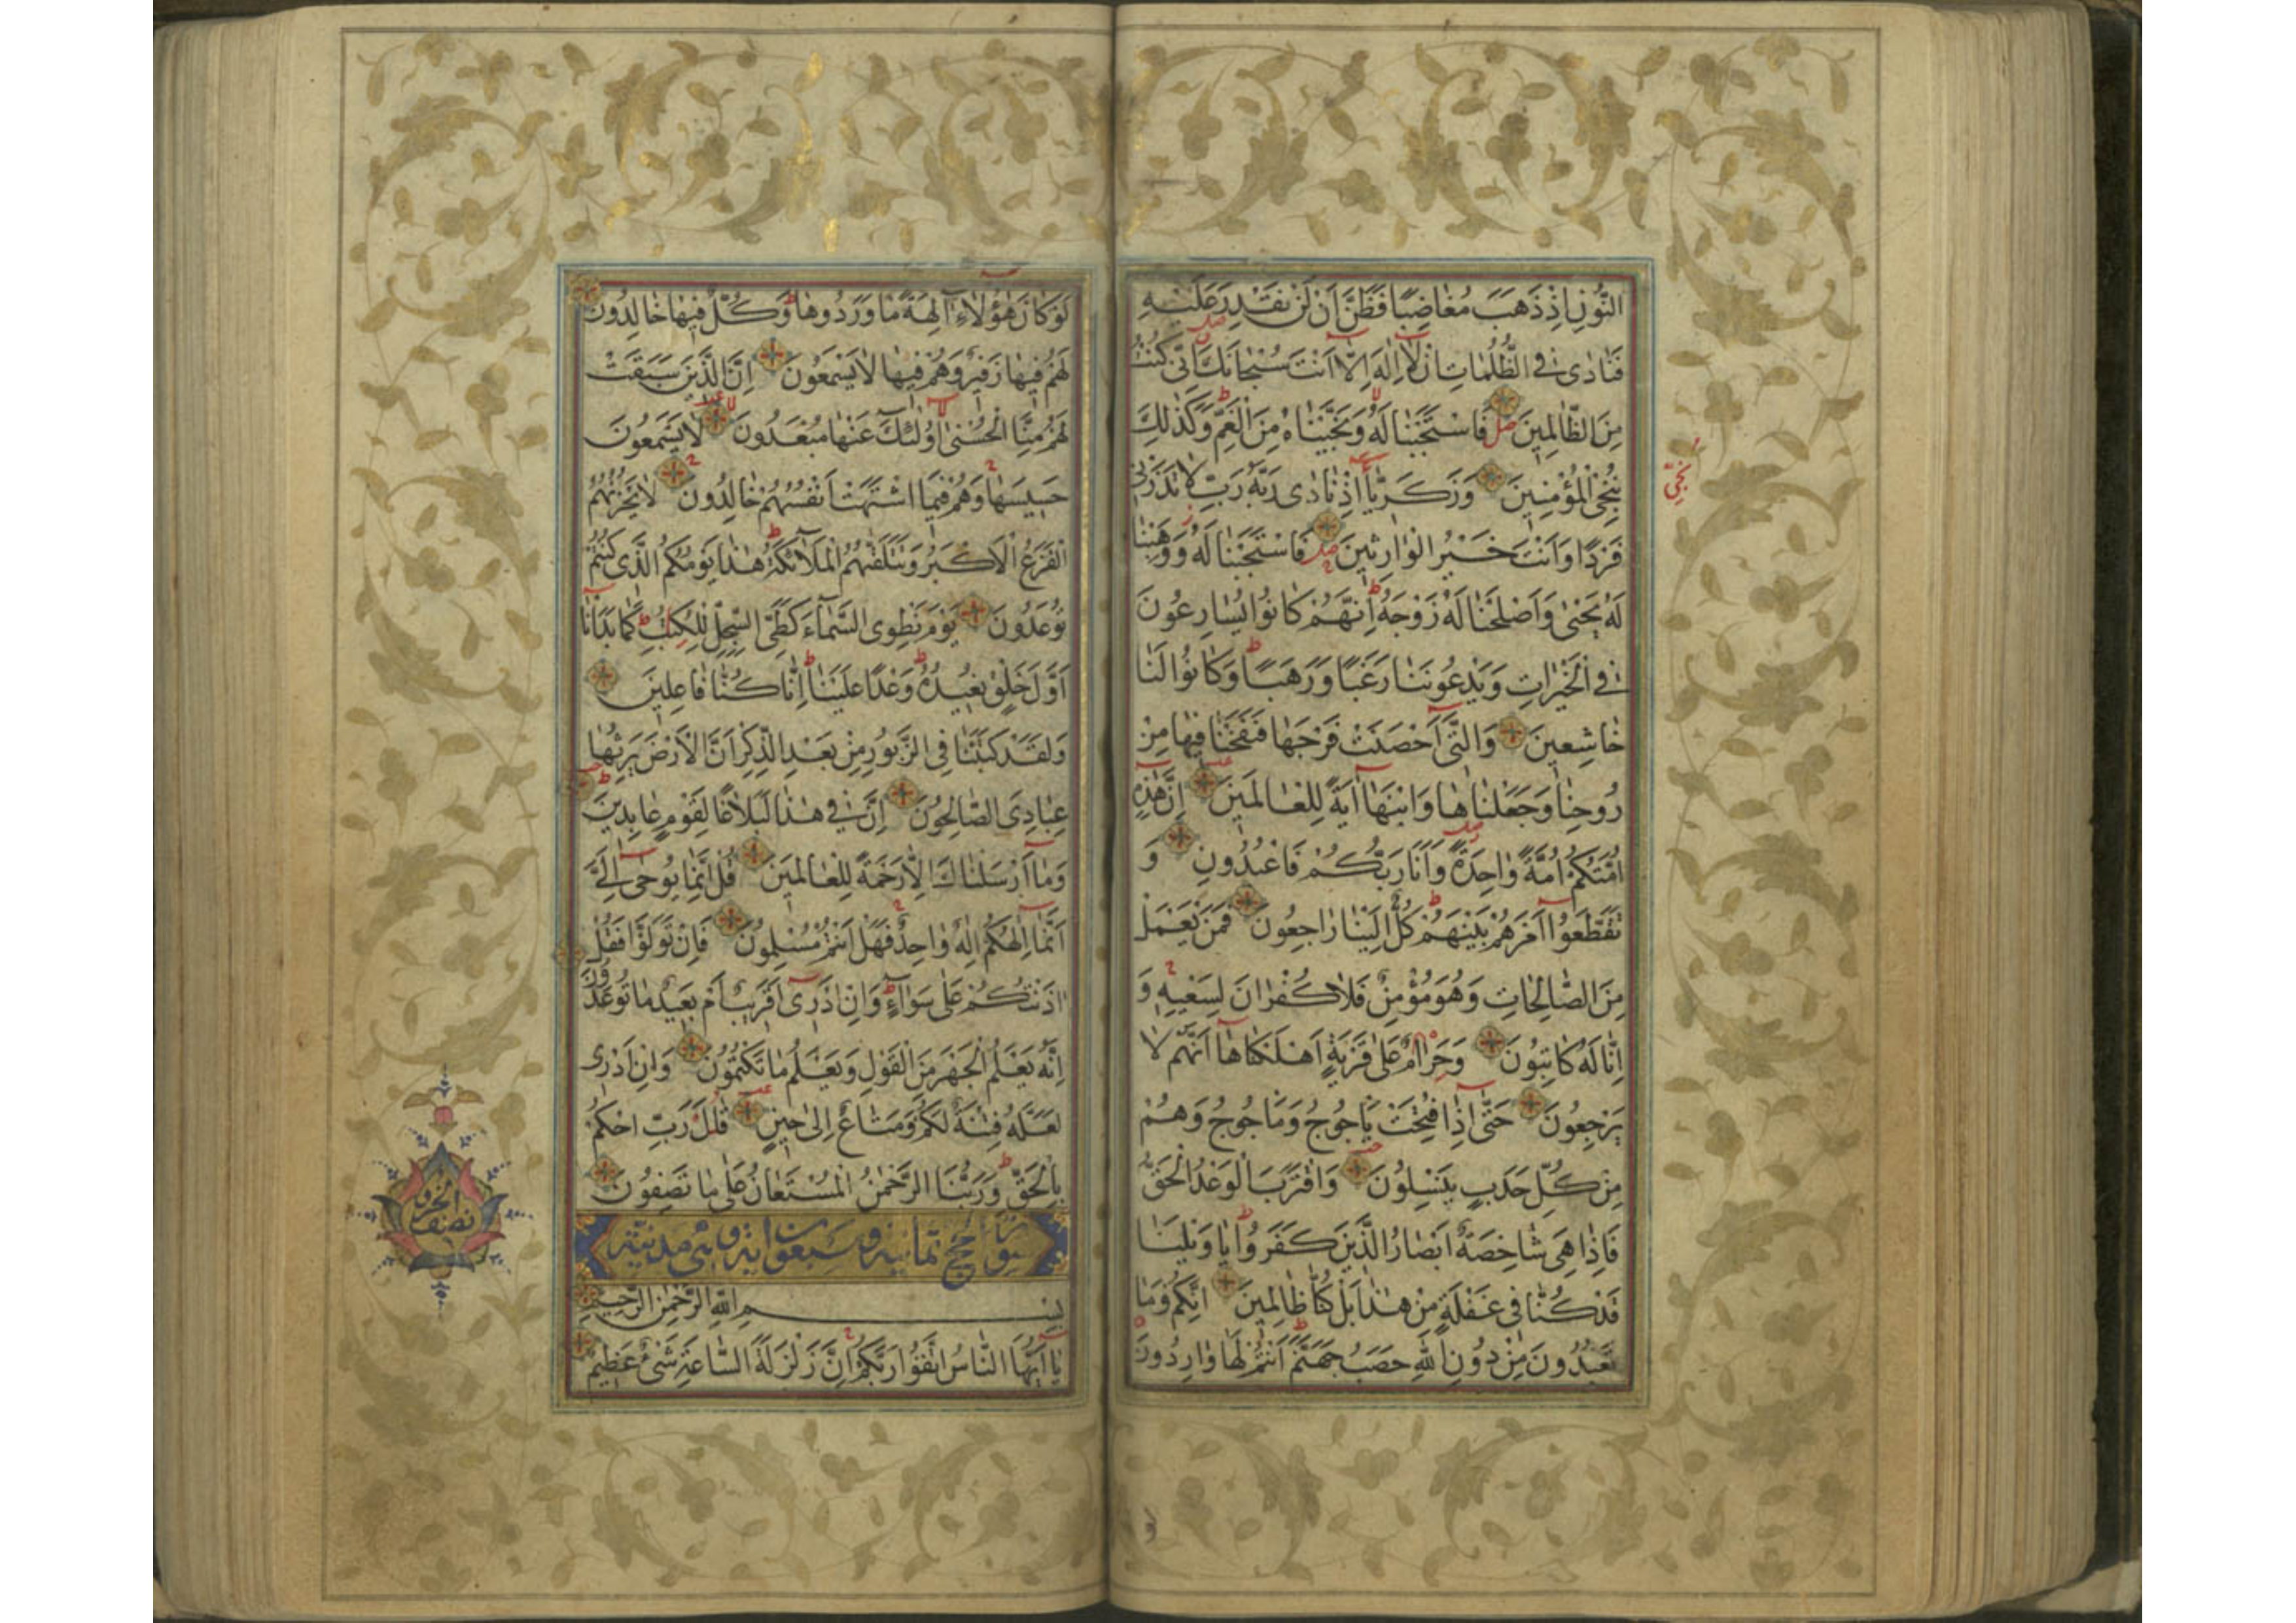 النُّونِ اِذْ ذَهَبَ مُغَاضِبًا فَظَنَّ اَنْ لَنْ نَقْدِرَ عَلَيْهِ
فَنَادٰى فِى الظُّلُمَاتِ اَنْ لَا اِلٰهَ اِلَّا اَنْتَ سُبْحَانَكَ اِنِّى كُنْتُ
مِنَ الظَّالِمِينَ فَاسْتَجَبْنَا لَهُ وَنَجَّيْنَاهُ مِنَ الْغَمِّ وَكَذٰلِكَ
نُنْجِى الْمُؤْمِنِينَ وَزَكَرِيَّا اِذْ نَادٰى رَبَّهُ رَبِّ لَا تَذَرْنِى
فَرْدًا وَاَنْتَ خَيْرُ الْوَارِثِينَ فَاسْتَجَبْنَا لَهُ وَوَهَبْنَا
لَهُ يَحْيٰى وَاَصْلَحْنَا لَهُ زَوْجَهُ اِنَّهُمْ كَانُوا يُسَارِعُونَ
فِى الْخَيْرَاتِ وَيَدْعُونَنَا رَغَبًا وَرَهَبًا وَكَانُوا لَنَا
خَاشِعِينَ وَالَّتِى اَحْصَنَتْ فَرْجَهَا فَنَفَخْنَا فِيهَا مِنْ
رُوحِنَا وَجَعَلْنَاهَا وَابْنَهَا اٰيَةً لِلْعَالَمِينَ اِنَّ هٰذِهِ
اُمَّتُكُمْ اُمَّةً وَاحِدَةً وَاَنَا رَبُّكُمْ فَاعْبُدُونِ وَ
تَقَطَّعُوا اَمْرَهُمْ بَيْنَهُمْ كُلٌّ اِلَيْنَا رَاجِعُونَ فَمَنْ يَعْمَلْ
مِنَ الصَّالِحَاتِ وَهُوَ مُؤْمِنٌ فَلَا كُفْرَانَ لِسَعْيِهِ وَ
اِنَّا لَهُ كَاتِبُونَ وَحَرَامٌ عَلٰى قَرْيَةٍ اَهْلَكْنَاهَا اَنَّهُمْ لَا
يَرْجِعُونَ حَتّٰى اِذَا فُتِحَتْ يَأْجُوجُ وَمَأْجُوجُ وَهُمْ
مِنْ كُلِّ حَدَبٍ يَنْسِلُونَ وَاقْتَرَبَ الْوَعْدُ الْحَقُّ
فَاِذَا هِىَ شَاخِصَةٌ اَبْصَارُ الَّذِينَ كَفَرُوا يَا وَيْلَنَا
قَدْ كُنَّا فِى غَفْلَةٍ مِنْ هٰذَا بَلْ كُنَّا ظَالِمِينَ اِنَّكُمْ وَمَا
تَعْبُدُونَ مِنْ دُونِ اللّٰهِ حَصَبُ جَهَنَّمَ اَنْتُمْ لَهَا وَارِدُونَ
لَوْ كَانَ هٰؤُلَاءِ اٰلِهَةً مَا وَرَدُوهَا وَكُلٌّ فِيهَا خَالِدُونَ
لَهُمْ فِيهَا زَفِيرٌ وَهُمْ فِيهَا لَا يَسْمَعُونَ اِنَّ الَّذِينَ سَبَقَتْ
لَهُمْ مِنَّا الْحُسْنٰى اُولٰئِكَ عَنْهَا مُبْعَدُونَ لَا يَسْمَعُونَ
حَسِيسَهَا وَهُمْ فِيمَا اشْتَهَتْ اَنْفُسُهُمْ خَالِدُونَ لَا يَحْزُنُهُمُ
الْفَزَعُ الْاَكْبَرُ وَتَتَلَقّٰيهُمُ الْمَلَائِكَةُ هٰذَا يَوْمُكُمُ الَّذِى كُنْتُمْ
تُوعَدُونَ يَوْمَ نَطْوِى السَّمَاءَ كَطَىِّ السِّجِلِّ لِلْكُتُبِ كَمَا بَدَأْنَا
اَوَّلَ خَلْقٍ نُعِيدُهُ وَعْدًا عَلَيْنَا اِنَّا كُنَّا فَاعِلِينَ
وَلَقَدْ كَتَبْنَا فِى الزَّبُورِ مِنْ بَعْدِ الذِّكْرِ اَنَّ الْاَرْضَ يَرِثُهَا
عِبَادِىَ الصَّالِحُونَ اِنَّ فِى هٰذَا لَبَلَاغًا لِقَوْمٍ عَابِدِينَ
وَمَا اَرْسَلْنَاكَ اِلَّا رَحْمَةً لِلْعَالَمِينَ قُلْ اِنَّمَا يُوحٰى اِلَىَّ
اَنَّمَا اِلٰهُكُمْ اِلٰهٌ وَاحِدٌ فَهَلْ اَنْتُمْ مُسْلِمُونَ فَاِنْ تَوَلَّوْا فَقُلْ
اٰذَنْتُكُمْ عَلٰى سَوَاءٍ وَاِنْ اَدْرِى اَقَرِيبٌ اَمْ بَعِيدٌ مَا تُوعَدُونَ
اِنَّهُ يَعْلَمُ الْجَهْرَ مِنَ الْقَوْلِ وَيَعْلَمُ مَا تَكْتُمُونَ وَاِنْ اَدْرِى
لَعَلَّهُ فِتْنَةٌ لَكُمْ وَمَتَاعٌ اِلٰى حِينٍ قَالَ رَبِّ احْكُمْ
بِالْحَقِّ وَرَبُّنَا الرَّحْمٰنُ الْمُسْتَعَانُ عَلٰى مَا تَصِفُونَ
سورة الحج ثمانية وسبعون اية وهى مدنية
بِسْمِ اللّٰهِ الرَّحْمٰنِ الرَّحِيمِ
يَا اَيُّهَا النَّاسُ اتَّقُوا رَبَّكُمْ اِنَّ زَلْزَلَةَ السَّاعَةِ شَىْءٌ عَظِيمٌ
نصف الحزب